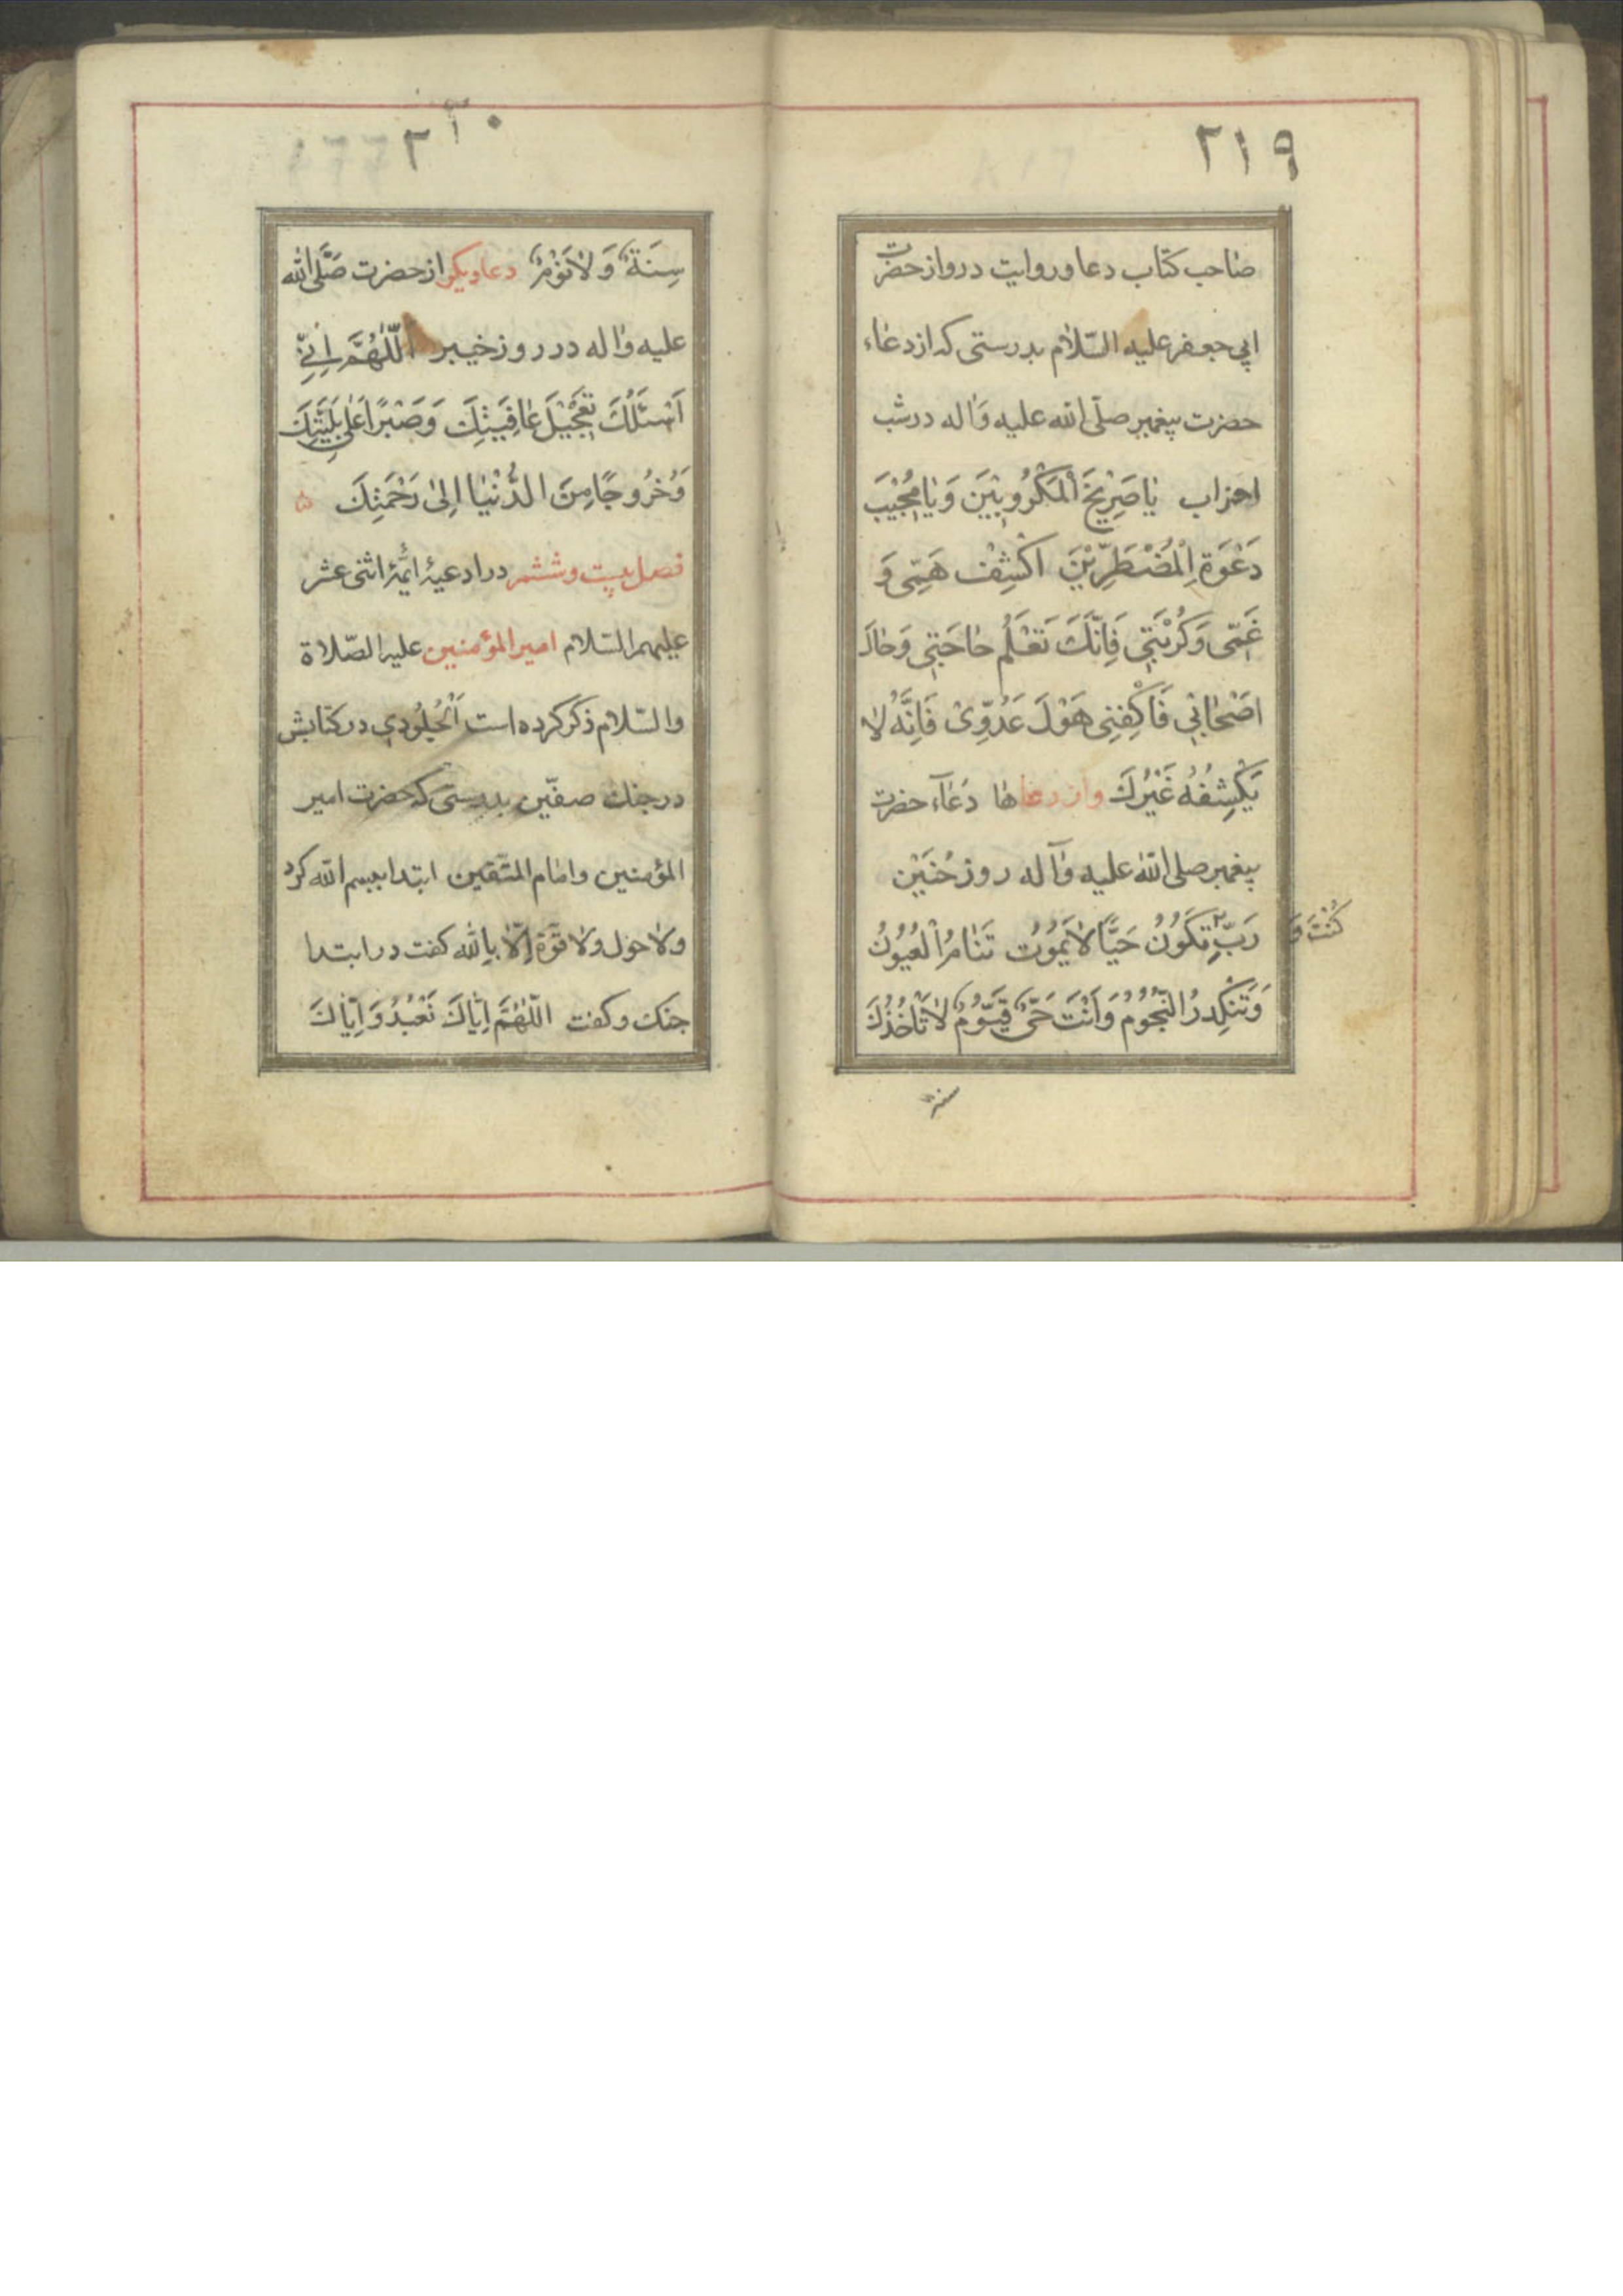 ٢١٩
صاحب كتاب دعا وروايت درو از حضرت
ابي جعفر عليه السّلام بدرستى كه از دعاء
حضرت پيغمبر صلّى الله عليه وَاله در شب
احزاب يٰا صَرِيْخَ الْمَكْرُوبِيْنَ وَيٰا مُجِيْبَ
دَعْوَةِ الْمُضْطَرِّيْنَ اكْشِفْ هَمِّى وَ
غَمِّى وَكُرْبَتِي فَاِنَّكَ تَعْلَمُ حٰاجَتِي وَحٰالَ
اصْحٰابِي فَاكْفِنِى هَوْلَ عَدُوِّىْ فَاِنَّهُ لاٰ
يَكْشِفُهُ غَيْرُكَ واز دعاها دُعٰآء حضرت
پيغمبر صلى الله عليه وَآله روز حُنَيْن
كُنْتَ وَ
رَبِّ تَكُوْنُ حَيًّا لاٰ يَمُوْتُ تَنٰامُ الْعُيُوْنُ
وَتَنْكَدِرُ النُّجُوْمُ وَاَنْتَ حَىٌّ قَيُّوْمٌ لاٰ تَاْخُذُكَ
سنة
٢٢٠
سِنَةٌ وَلاٰ نَوْمٌ دعا ديكر از حضرت صَلَّى الله
عليه وٰاله در روز خيبر اَللّٰهُمَّ اِنِّي
اَسْئَلُكَ تَعْجِيْلَ عٰافِيَتِكَ وَصَبْرًا عَلٰى بَلِيَّتِكَ
وَخُرُوجًا مِنَ الدُّنْيٰا اِلىٰ رَحْمَتِكَ
فصل بيست و ششم در ادعيۀ ائمّۀ اثنى عشر
عليهم السّلام امير المؤمنين عليه الصّلاة
والسّلام ذكر كرده است اَلْجُلُودِي در كتابش
در جنك صفّين بدرستى كه حضرت امير
المؤمنين وامام المتّقين ابتدا ببسم الله كرد
ولا حول ولا قوّة اِلّا بِالله كفت در ابتدا
جنك وكفت اللّٰهُمَّ اِيّٰاكَ نَعْبُدُ وَاِيّٰاكَ